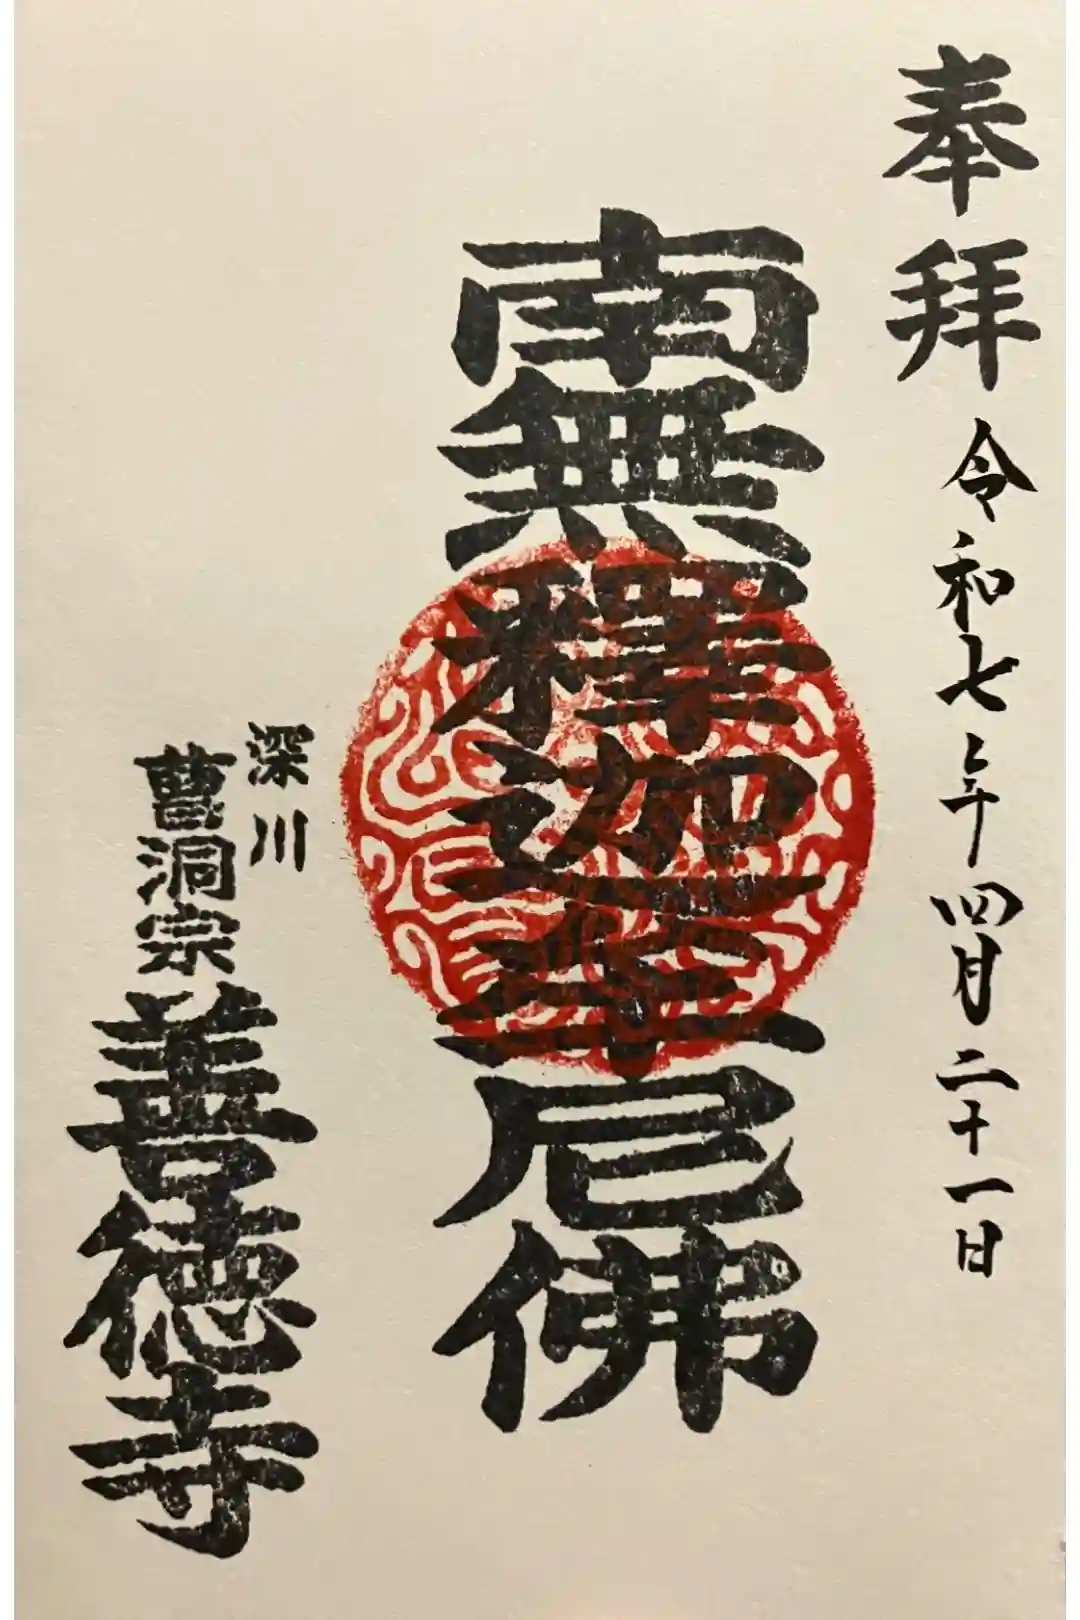 奉拜
令和七年四月二十一日
南無釋迦牟尼佛
深川
曹洞宗
善德寺